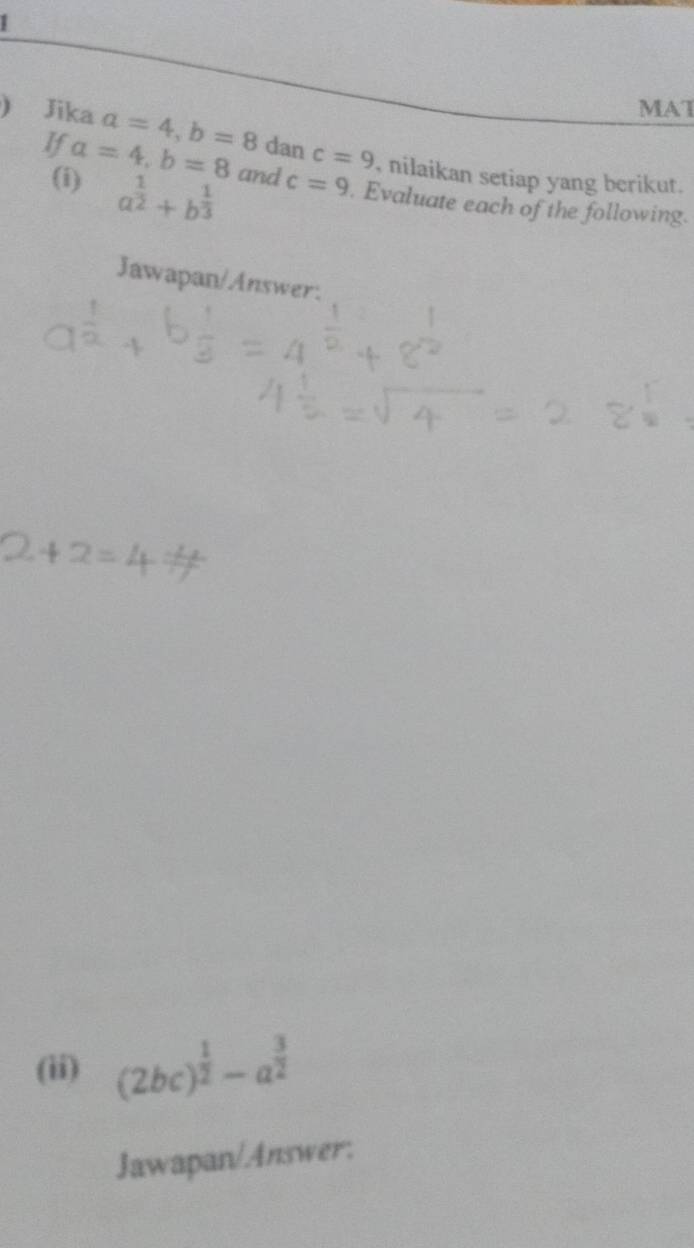 1
MAT
) Jika a = 4, b = 8 dan c = 9, nilaikan setiap yang berikut.
If a = 4, b = 8 and c = 9. Evaluate each of the following.
(i) a^{1/2} + b^{1/3}
Jawapan/Answer:
a^{1/2} + b^{1/3} = 4^{1/2} + 8^{1/2}
4^{1/2} = √4 = 2 8
2 + 2 = 4 #
(ii) (2bc)^{1/2} − a^{3/2}
Jawapan/Answer: